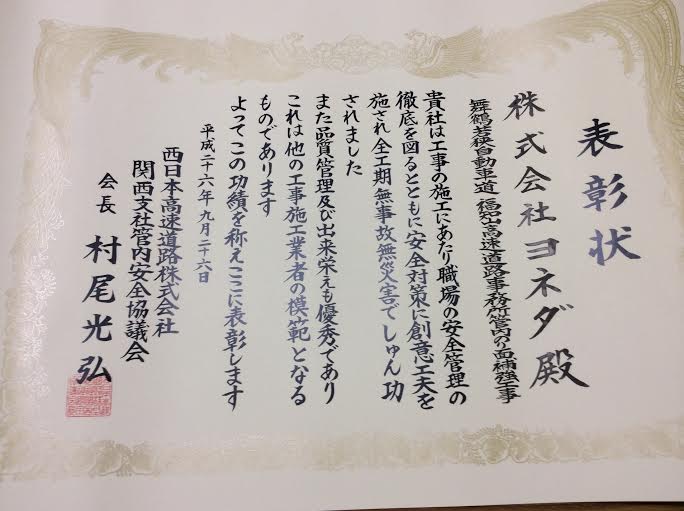 表彰状
株式会社ヨネダ殿
舞鶴若狭自動車道 福知山高速道路事務所管内のり面補強工事
貴社は工事の施工にあたり職場の安全管理の
徹底を図るとともに安全対策に創意工夫を
施され全工期無事故無災害でしゅん功
されました
また品質管理及び出来栄えも優秀であり
これは他の工事施工業者の模範となる
ものであります
よってこの功績を称えここに表彰します
平成二十六年九月二十六日
西日本高速道路株式会社
関西支社管内安全協議会
会長 村尾光弘